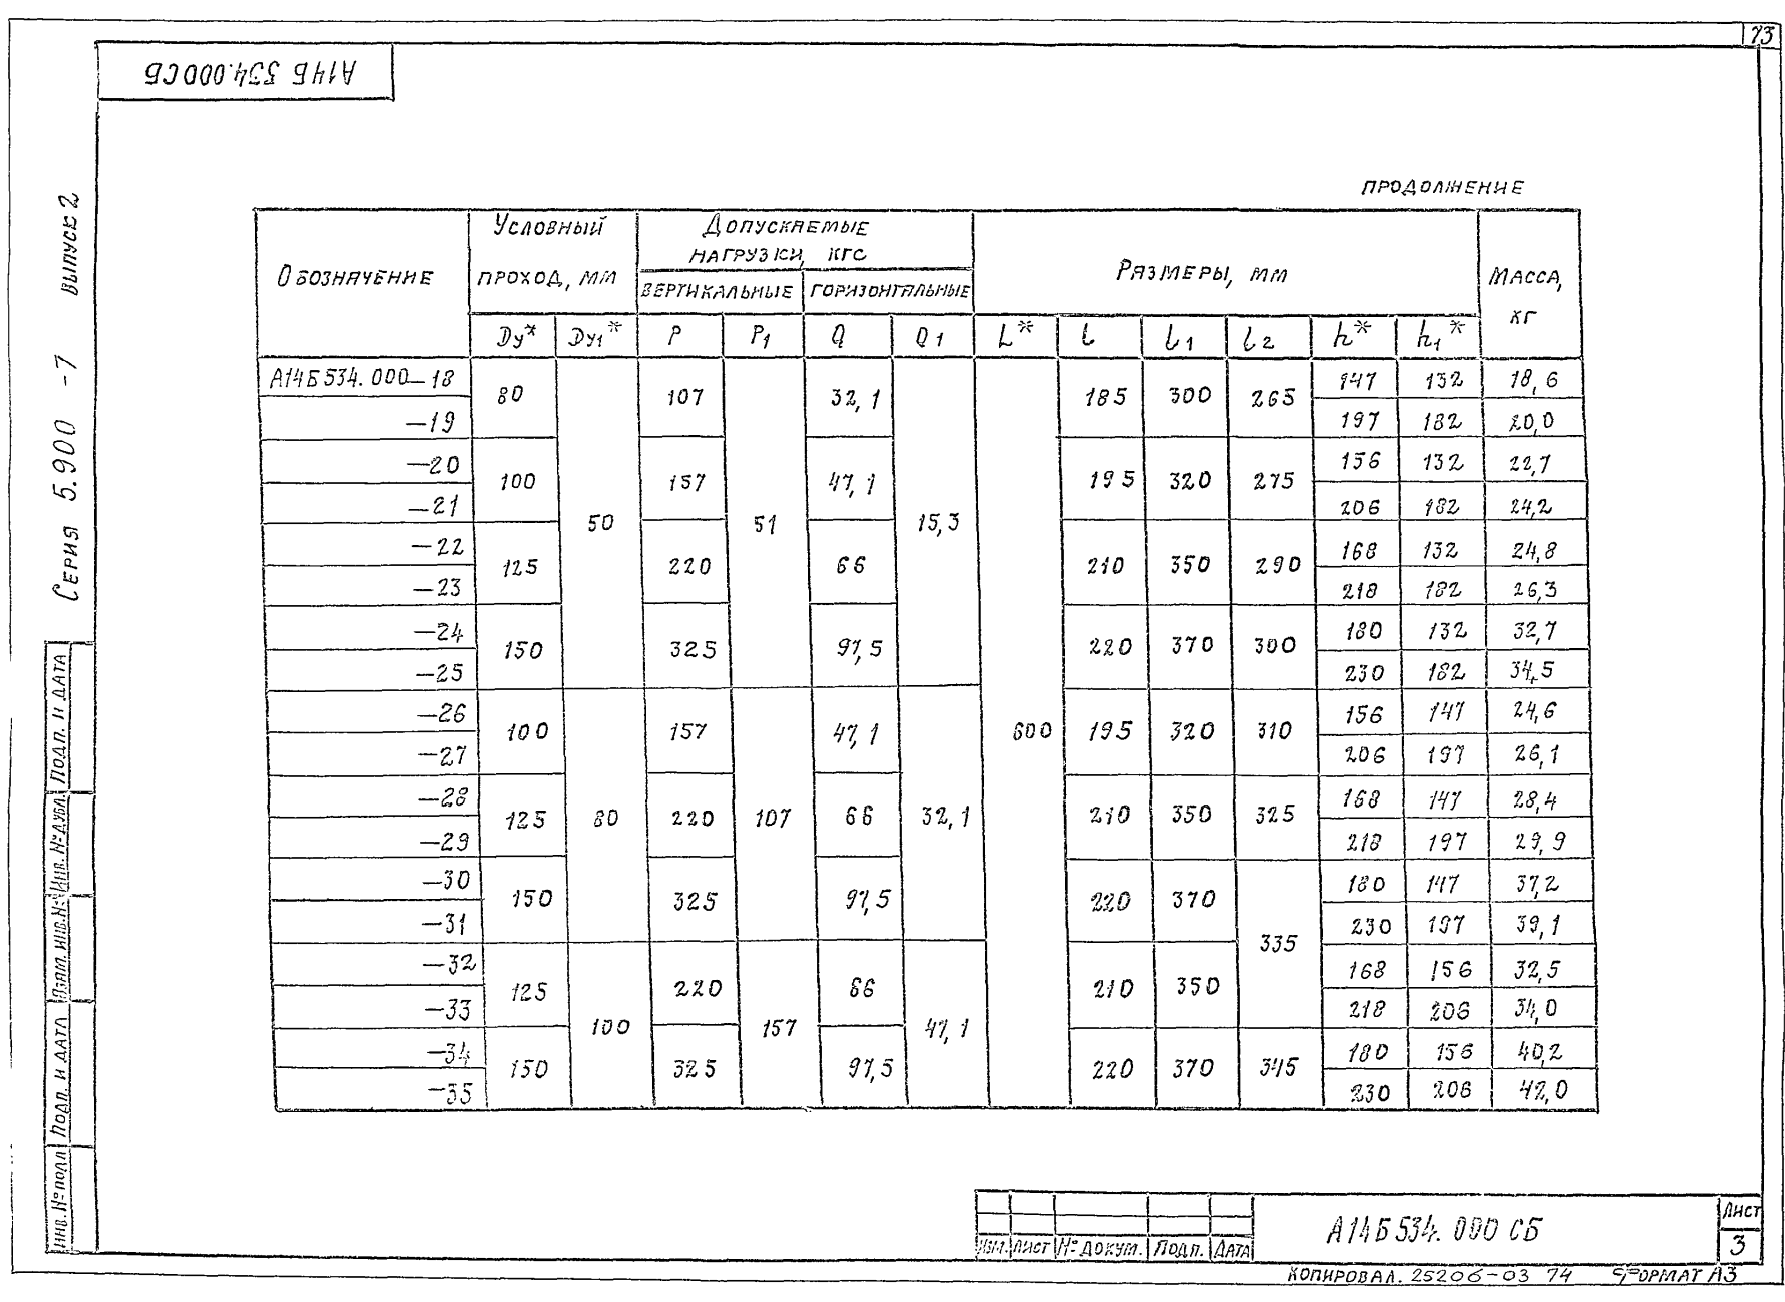 73
А14Б 534.000 СБ
Серия 5.900 -7 выпуск 2
ПРОДОЛЖЕНИЕ
Обозначение
Условный проход, мм
Допускаемые нагрузки, кгс
Размеры, мм
Масса, кг
вертикальные
горизонтальные
Dу* Dу1* P P1 Q Q1 L* l l1 l2 h* h1*
А14Б534.000-18 80 50 107 51 32,1 15,3 600 185 300 265 147 132 18,6
-19 197 182 20,0
-20 100 157 47,1 195 320 275 156 132 22,7
-21 206 182 24,2
-22 125 220 66 210 350 290 168 132 24,8
-23 218 182 26,3
-24 150 325 97,5 220 370 300 180 132 32,7
-25 230 182 34,5
-26 100 80 157 107 47,1 32,1 195 320 310 156 147 24,6
-27 206 197 26,1
-28 125 220 66 210 350 325 168 147 28,4
-29 218 197 29,9
-30 150 325 97,5 220 370 335 180 147 37,2
-31 230 197 39,1
-32 125 100 220 157 66 47,1 210 350 168 156 32,5
-33 218 206 34,0
-34 150 325 97,5 220 370 345 180 156 40,2
-35 230 206 42,0
Инв.№ подл Подп. и дата Взам. инв.№ Инв.№ дубл. Подп. и дата
Изм. Лист № докум. Подп. Дата
А14Б534.000 СБ
Лист
3
Копировал. 25206-03 74 Формат А3